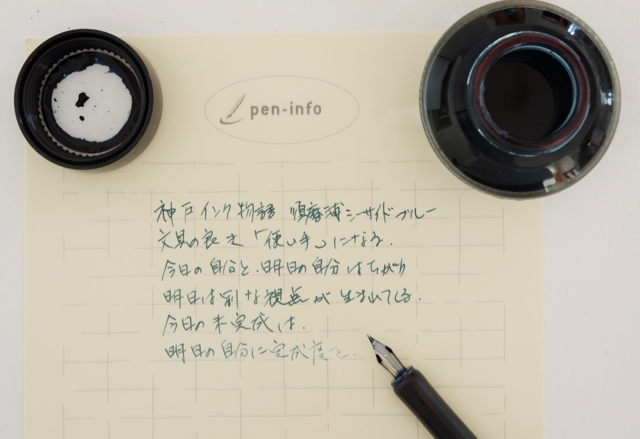 pen-info
神戸インク物語 須磨浦シーサイドブルー
文具の良き「使い手」になる.
今日の自分と、明日の自分はちがう
明日は別な視点が生まれてくる.
今日の未完成は.
明日の自分に完成度を.